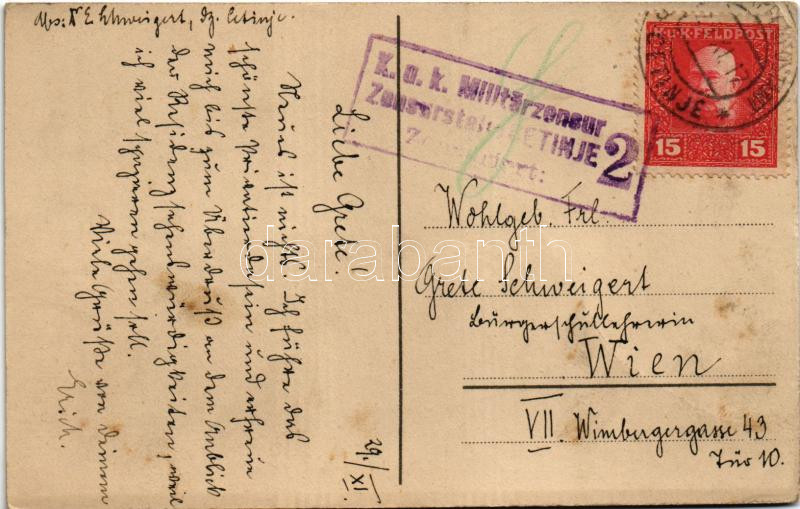 Abs: Dr E. Schweigert, dz. Cetinje.
29./XI.
Liebe Grete!
Neues ist nicht. Ich führe das
schönste Privatierdasein und erfreue
mich bis zum Überdruß an dem Anblick
der Residenzsehenswürdigkeiten, weil
ich viel spazieren gehen soll.
Viele Grüße von Deinem
Erich.
K. u. k. Militärzensur
Zensurstelle CETINJE 2
K.u.K.FELDPOST
15 15
Wohlgeb. Frl.
Grete Schweigert
Bürgerschullehrerin
Wien
VII. Wimbergergasse 43
Tür 10.
darabanth